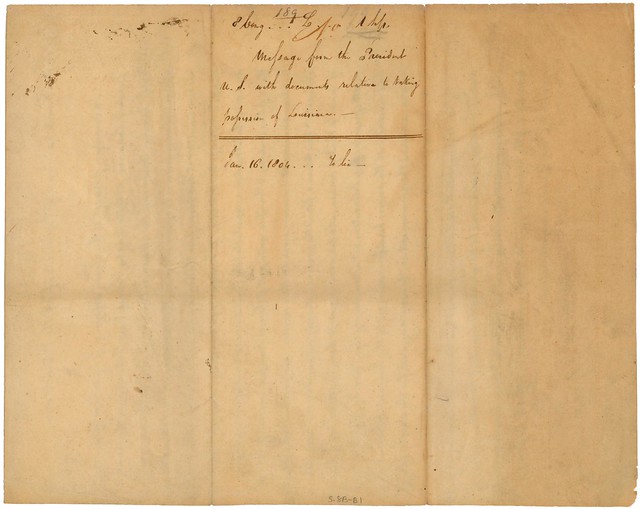 189
8 Cong... Exo 1 Sess.
Message from the President
U. S. with documents relative to taking
possession of Louisiana. —
Jan. 16. 1804... To lie —
S-8B-B1